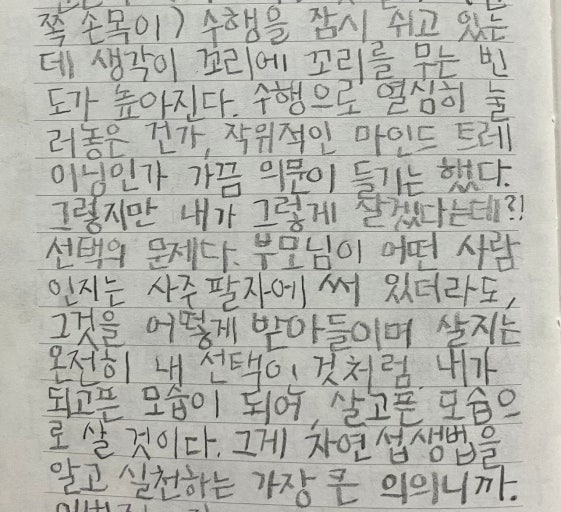 쪽 손목이) 수행을 잠시 쉬고 있는
데 생각이 꼬리에 꼬리를 무는 빈
도가 높아진다. 수행으로 열심히 눌
러놓은 건가, 작위적인 마인드 트레
이닝인가 가끔 의문이 들기는 했다.
그렇지만 내가 그렇게 살겠다는데?!
선택의 문제다. 부모님이 어떤 사람
인지는 사주 팔자에 써 있더라도,
그것을 어떻게 받아들이며 살지는
온전히 내 선택인 것처럼, 내가
되고픈 모습이 되어, 살고픈 모습으
로 살 것이다. 그게 자연섭생법을
알고 실천하는 가장 큰 의의니까.